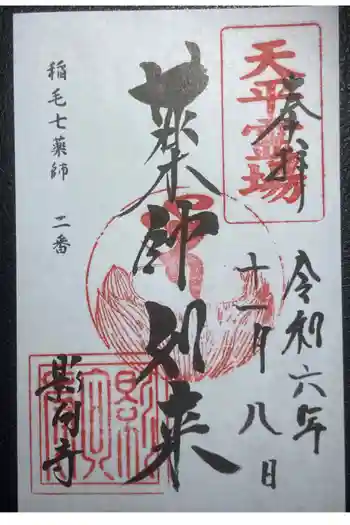 天平霊場
奉拝
令和六年
十一月八日
薬師如来
稲毛七薬師 二番
影向寺